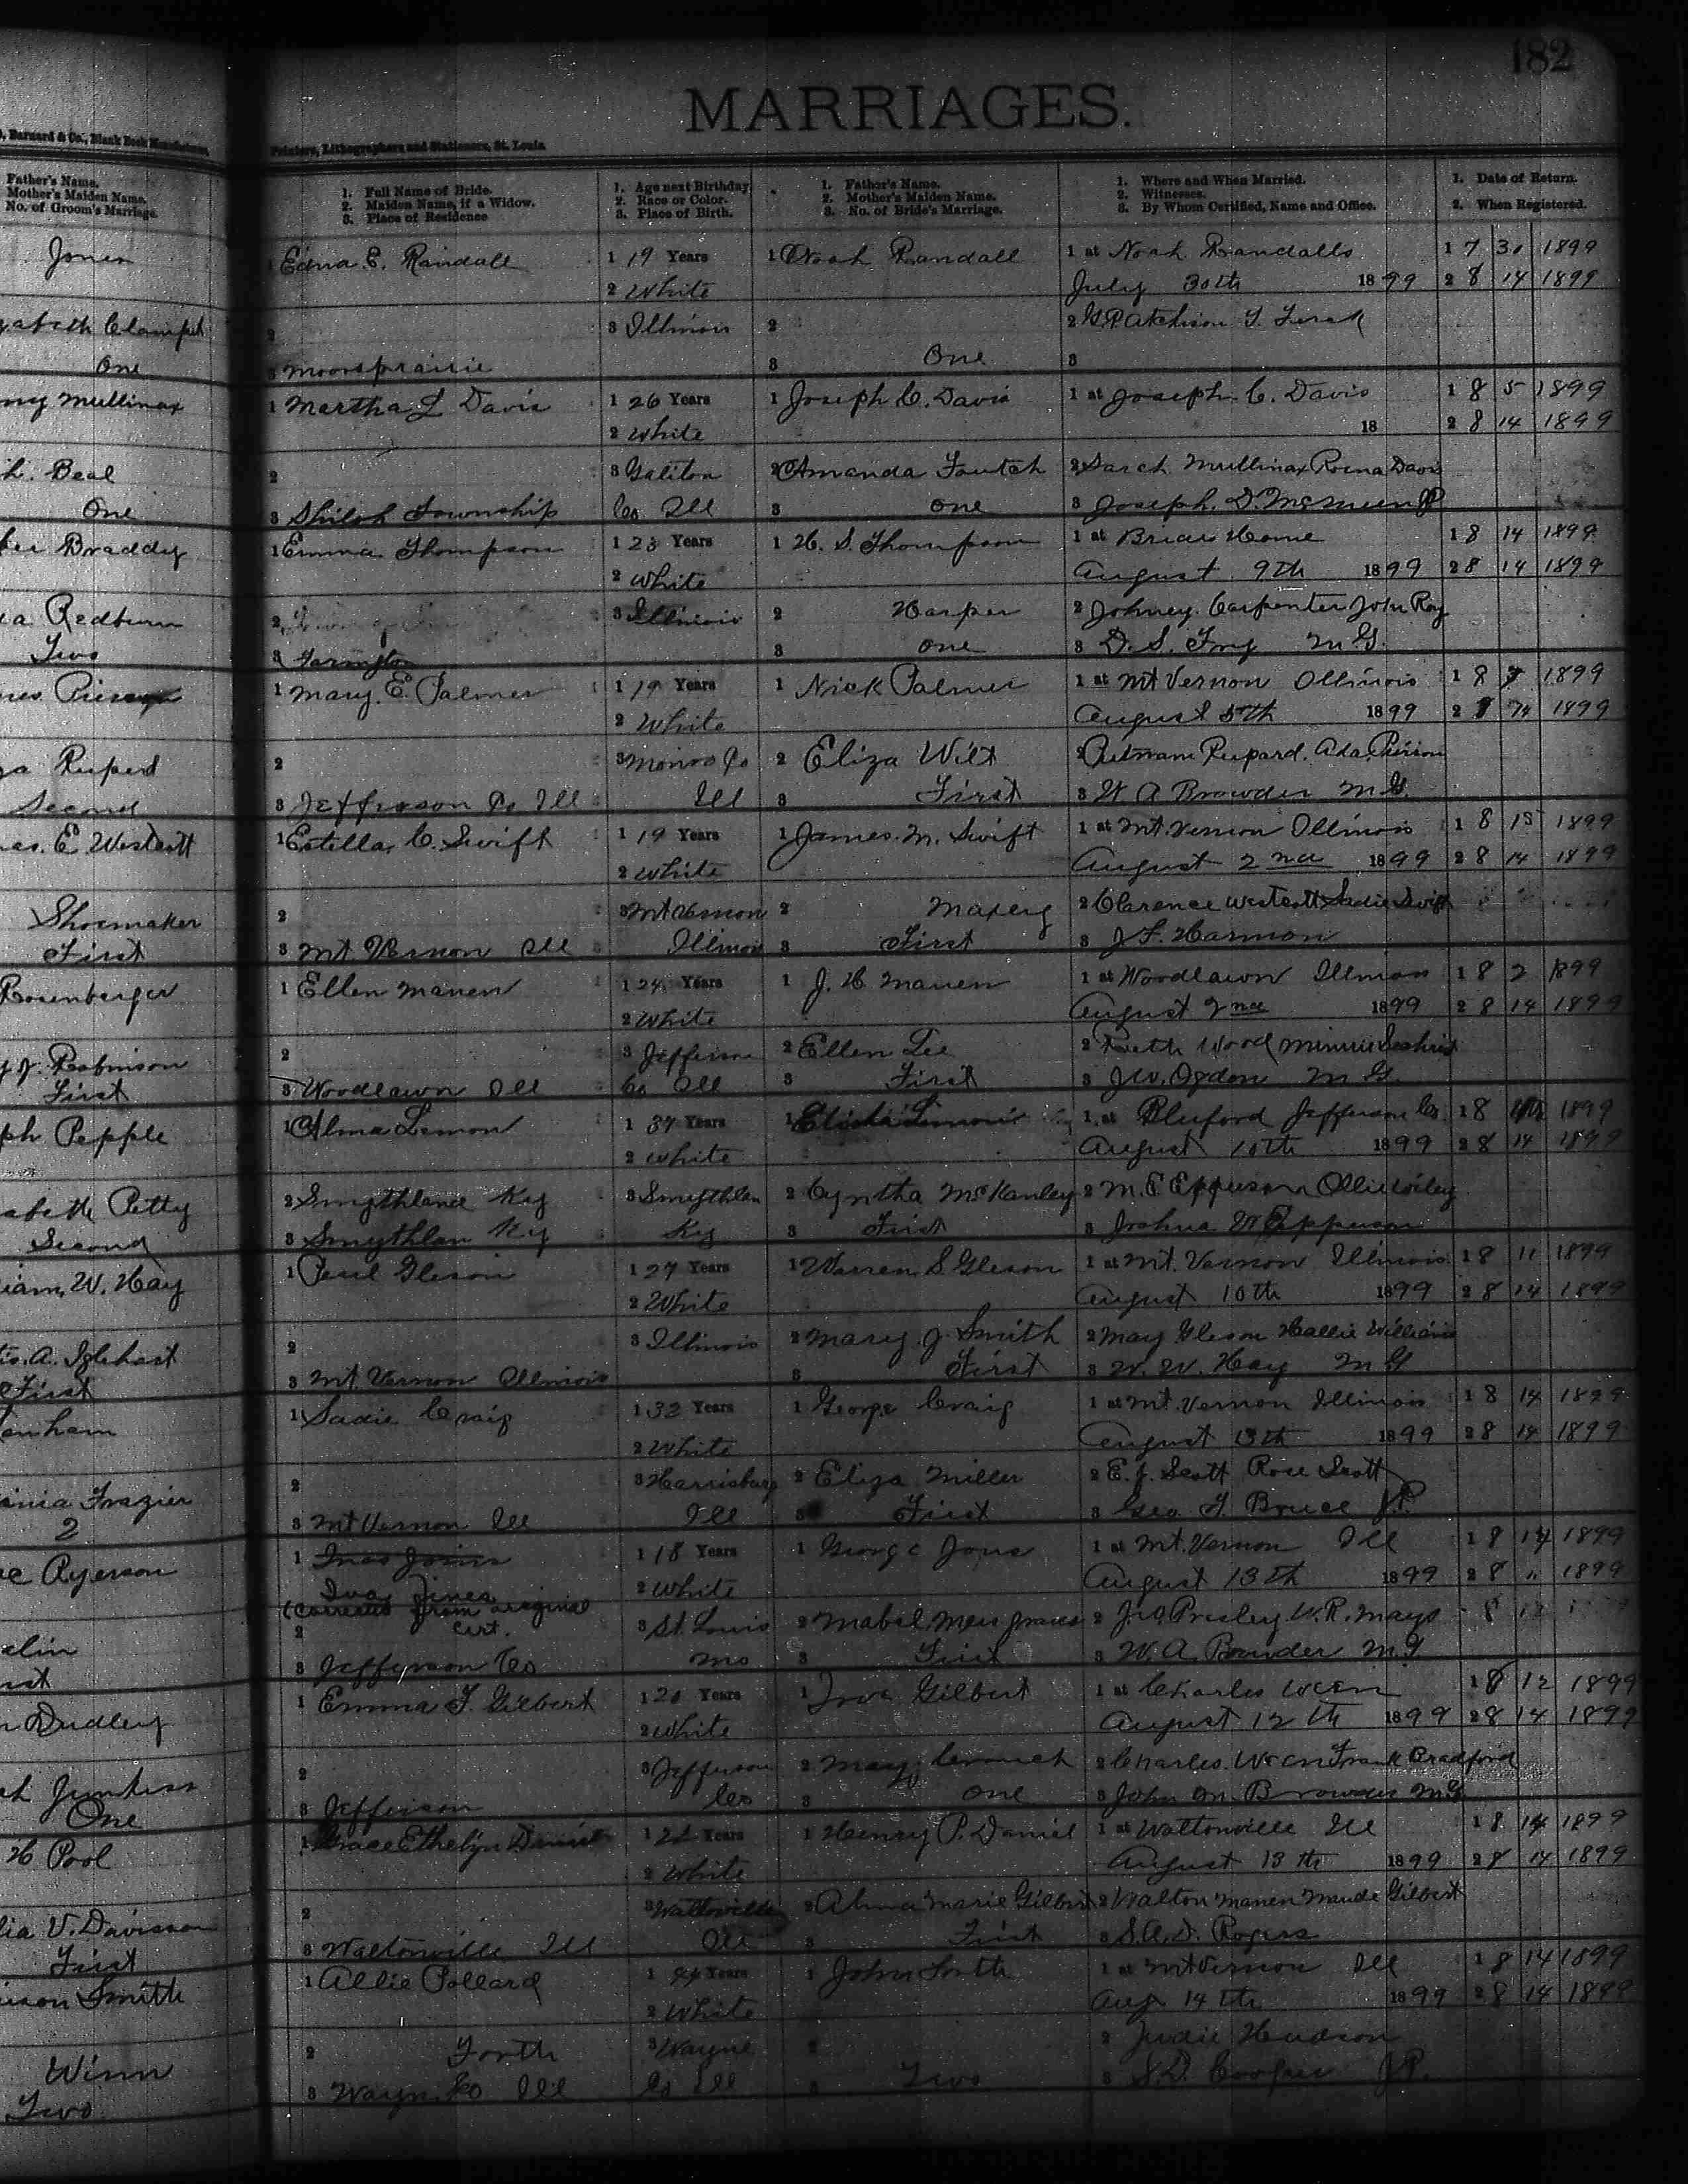 182
MARRIAGES.
Barnard & Co., Blank Book Manufacturers,
Printers, Lithographers and Stationers, St. Louis
Father's Name.
Mother's Maiden Name.
No. of Groom's Marriage.
1. Full Name of Bride.
2. Maiden Name, if a Widow.
3. Place of Residence
1. Age next Birthday
2. Race or Color.
3. Place of Birth.
1. Father's Name.
2. Mother's Maiden Name.
3. No. of Bride's Marriage.
1. Where and When Married.
2. Witnesses.
3. By Whom Certified, Name and Office.
1. Date of Return.
2. When Registered.
Jones 1 Edna E. Randall 1 19 Years 1 Noah Randall 1 at Noah Randalls 1 7 30 1899
2 White July 30th 1899 2 8 14 1899
2 3 Illinois 2 2 G.P. Atchison
One 3 Moorsprairie 3 One 3
Mullinax 1 Martha L Davis 1 26 Years 1 Joseph C. Davis 1 at Joseph C. Davis 1 8 5 1899
2 White 18 2 8 14 1899
Beal 2 3 2 Amanda 2 Sarah Mullinax Roena Davis
One 3 Shiloh Township Co Ill 3 One 3 Joseph. D. McMeen JP
Braddy 1 Emma Thompson 1 23 Years 1 H. S. Thompson 1 at Briar Home 1 8 14 1899
2 White August 9th 1899 2 8 14 1899
Redburn 2 3 Illinois 2 Harper 2 Johney Carpenter John Roy
Two 3 Farington 3 One 3 D. S. Fry M.G.
1 Mary. E. Palmer 1 19 Years 1 Nick Palmer 1 at Mt Vernon Illinois 1 8 7 1899
2 White August 5th 1899 2 8 14 1899
2 3 Monroe Co 2 Eliza Wilt 2 Putmam Rupard. Ada Pierson
Second 3 Jeffrason Co Ill Ill 3 First 3 W. A Browder M.G.
E Westcott 1 Estella C. Swift 1 19 Years 1 James. M. Swift 1 at Mt. Vernon Illinois 1 8 15 1899
2 White August 2nd 1899 2 8 14 1899
Shoemaker 2 3 Mt Vernon 2 Maxey 2 Clarence Westcott Sadie Swift
First 3 Mt. Vernon Ill Illinois 3 First 3 J. F. Harmon
Rosenberger 1 Ellen Manen 1 24 Years 1 J. H. Manen 1 at Woodlawn Illinois 1 8 2 1899
2 White August 2nd 1899 2 8 14 1899
Robinson 2 3 Jefferson 2 Ellen Lee 2 Wood Minnie
First 3 Woodlawn Ill Co Ill 3 First 3 J.W. Ogdon M.G.
Pepple 1 Alma Lemon 1 37 Years 1 1 at Bluford Jefferson Co. 1 8 1899
2 White August 10th 1899 2 8 14 1899
Petty 2 Smythland Ky 3 Smythlan 2 Cyntha McKanley 2 M. E Epperson Ollie Wiley
Second 3 Smythlan Ky Ky 3 First 3 Joshua Epperson
W. Hay 1 Gleson 1 27 Years 1 Warren S. Gleson 1 at Mt. Vernon Illinois 1 8 11 1899
2 White August 10th 1899 2 8 14 1899
A. Iglehart 2 3 Illinois 2 Mary J. Smith 2 May Gleson Hallie Williams
First 3 Mt. Vernon Illinois 3 First 3 W. W. Hay M G
1 Sadie Craig 1 32 Years 1 George Craig 1 at Mt. Vernon Illinois 1 8 14 1899
2 White August 13th 1899 2 8 14 1899
Frazier 2 3 Harrisburg 2 Eliza Miller 2 E. J. Scott Rose Scott
2 3 Mt Vernon Ill Ill 3 First 3 Geo. T. Bruce J.P.
Ryerson 1 1 18 Years 1 George 1 at Mt. Vernon Ill 1 8 14 1899
Iva Jines 2 White August 13th 1899 2 8 " 1899
(corrected from original
2 cert. 3 St. Louis 2 Mabel 2 Presley W. R. Mays
3 Jefferson Co Mo 3 First 3 W. A. Bowder M.G.
1 Emma F. Gilbert 1 20 Years 1 Gilbert 1 at Charles 1 8 12 1899
Dudley 2 White August 12th 1899 2 8 14 1899
2 3 Jefferson 2 Mary 2 Charles Frank Bradford
One 3 Jefferson Co 3 One 3 John M. Browder M.G.
H Pool 1 Grace Ethelyn Daniel 1 Years 1 Henry P. Daniel 1 at Waltonville Ill 1 8 14 1899
2 White August 13th 1899 2 8 14 1899
V. Davisson 2 3 Waltonville 2 Alma Marie Gilbert 2 Walton Manen Maude Gilbert
First 3 Waltonville Ill Ill 3 First 3 S. A. D. Rogers
Smith 1 Allie Pollard 1 Years 1 John Forth 1 at Mt Vernon Ill 1 8 14 1899
2 White Aug. 14th 1899 2 8 14 1899
Winn 2 Forth 3 Wayne 2 2 Judie Hudson
Two 3 Wayn Co Ill Co Ill 3 Two 3 S. D. Cooper J.P.